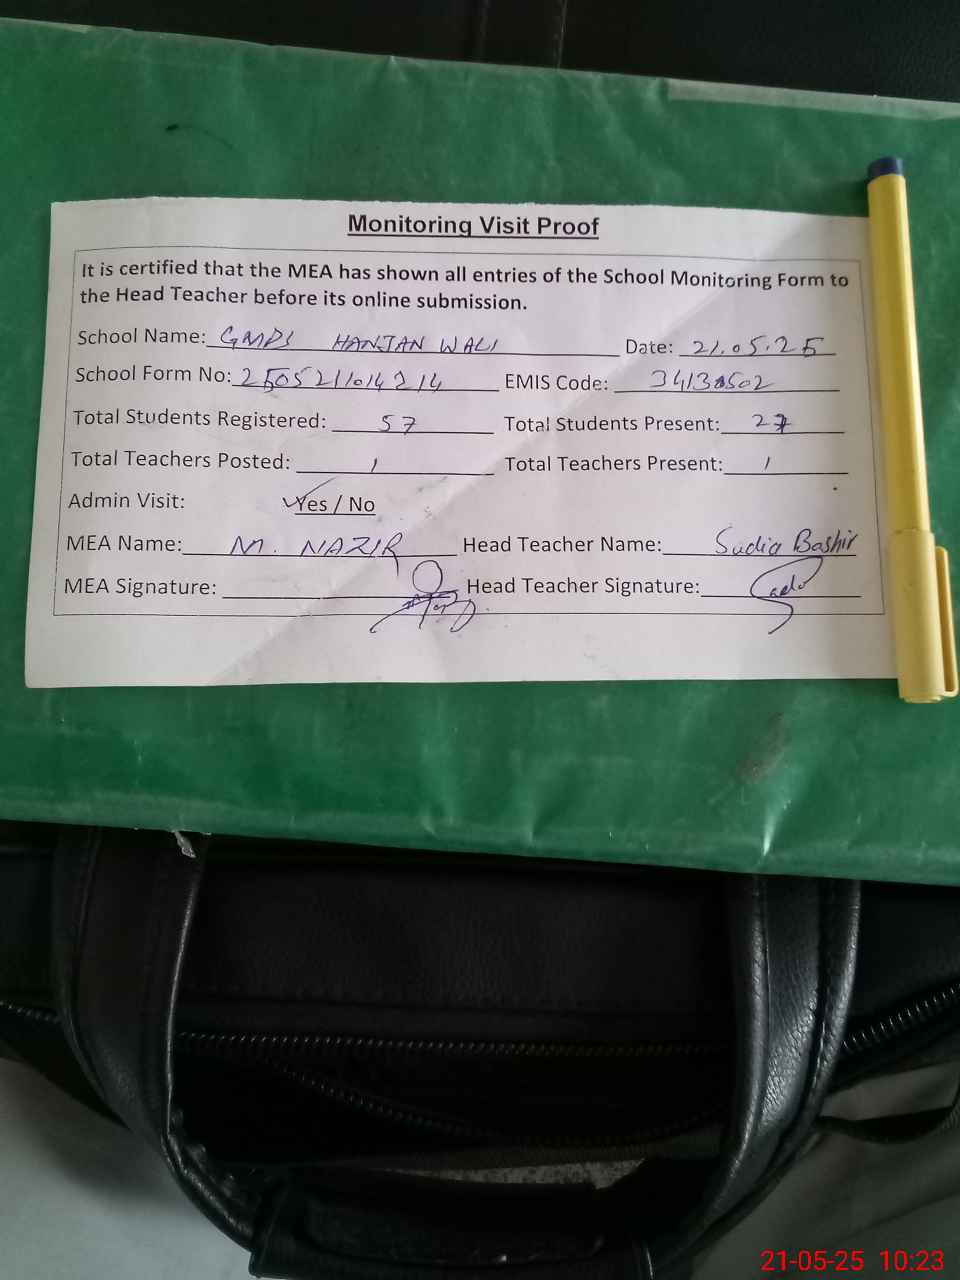 Monitoring Visit Proof
It is certified that the MEA has shown all entries of the School Monitoring Form to
the Head Teacher before its online submission.
School Name: GMPS HANJAN WALI Date: 21.05.25
School Form No: EMIS Code:
Total Students Registered: 57 Total Students Present: 27
Total Teachers Posted: 1 Total Teachers Present: 1
Admin Visit: Yes / No
MEA Name: M. NAZIR Head Teacher Name: Sadia Bashir
MEA Signature: Head Teacher Signature:
21-05-25 10:23